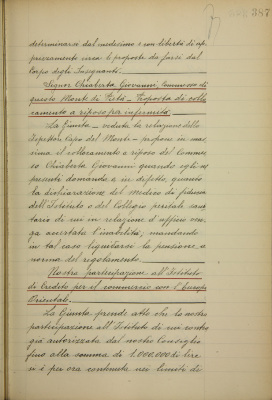 387
determinarsi dal medesimo e con libertà di ap
prezzamento circa le proposte da farsi dal
Corpo degli Insegnanti.
Signor Chiaberta Giovanni, Commesso di
questo Monte di Pietà - Proposta di collo
camento a riposo per infermità.
La Giunta - vedute la relazione dello
Ispettore Capo del Monte - propone in mas
sima il collocamento a riposo del Commes
so Chiaberta Giovanni quando egli ne
presenti domanda e in difetto, quando
la dichiarazione del medico di fiducia
dell'Istituto o del Collegio peritale sani
tario di cui in relazione d'ufficio ven
ga accertata l'inabilità; mandando
in tal caso liquidarsi la pensione a
norma del regolamento.
Nostra partecipazione all'Istituto
di Credito per il commercio con l'Europa
Orientale.
La Giunta prende atto che la nostra
partecipazione all'Istituto di cui contro
già autorizzata dal nostro Consiglio
fino alla somma di 1.000.000 di lire
si è per ora contenuta nei limiti di